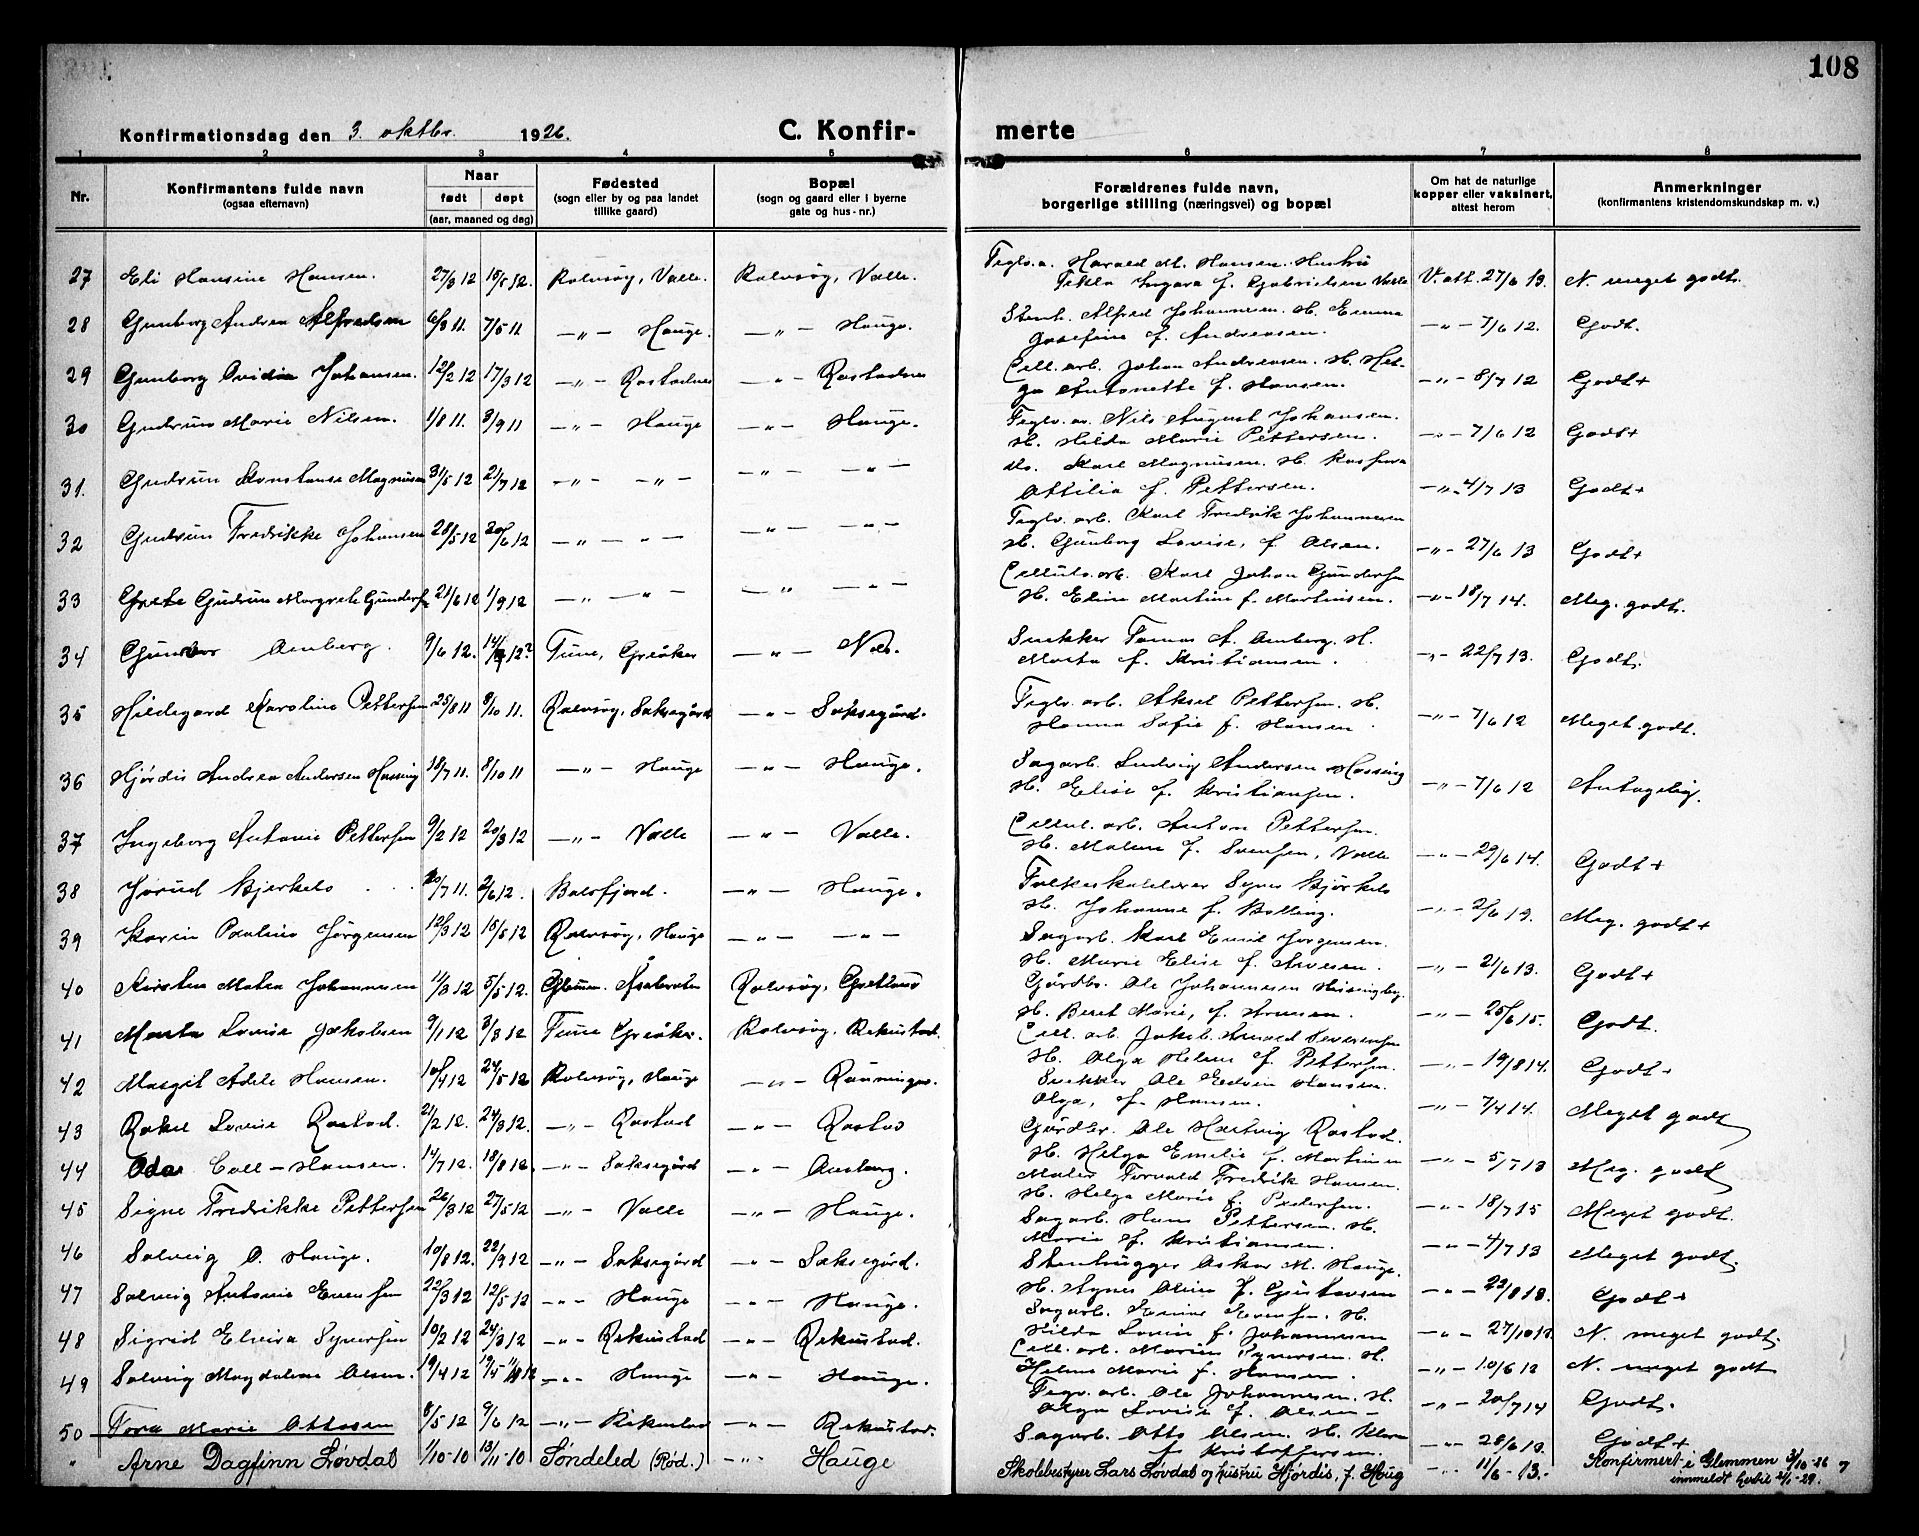 108
Konfirmationsdag den 3. oktbr. 1926.
C. Konfirmerte
1 2 3 4 5 6 7 8
Nr.
Konfirmantens fulde navn
(ogsaa efternavn)
Naar
født døpt
(aar, maaned og dag)
Fødested
(sogn eller by og paa landet
tillike gaard)
Bopæl
(sogn og gaard eller i byerne
gate og hus-nr.)
Forældrenes fulde navn,
borgerlige stilling (næringsvei) og bopæl
Om hat de naturlige
kopper eller vaksinert,
attest herom
Anmerkninger
(konfirmantens kristendomskundskap m. v.)
27 Eli Hansine Hansen. 27/3 12 Rolvsøy, Valle. Rolvsøy, Valle. Harald M. Hansen. Hustru Tekla f. Gabrielsen Valle V. att. 27/6 13. N. meget godt.
28 Gunborg Andrea Alfredsen 6/3 11. 7/5 11 —„— Hauge. —„— Hauge. Stenh. Alfred Johannesen. H. Emma Josefine f. Andreasen. —„— 7/6 12. Godt.
29 Gunborg Ovidia Johansen. 12/2 12 17/3 12 —„— Rostadnes —„— Rostadnes Cell. arb. Johan Andreasen. H. Helga Antonette f. Hansen. —„— 8/7 12 Godt+
30 Gudrun Marie Nilsen. 1/8 11. 3/9 11 —„— Hauge —„— Hauge. Nils August Johansen. H. Hilda Marie Pettersen. —„— 7/6 12 Godt+
31. Gudrun Konstanse Magnusen 31/5 12 21/7 12 —„— —„— —„— —„— Karl Magnusen. H. Attilia f. Pettersen. —„— 4/7 13 Godt+
32 Gudrun Fredrikke Johansen 28/5 12 30/6 12 —„— —„— —„— —„— Teglv. arb. Karl Fredrik Johannesen H. Gunborg Lovise, f. Olsen. —„— 27/6 13 Godt+
33 Grete Gudrun Margrete Gundersen 21/6 12 1/9 12 —„— —„— —„— —„— Cellulo. arb. Karl Johan Gundersen H. Eline Martine f. Martinsen. —„— 18/7 14. Meg. godt.
34 Amberg. 9/6 12. Tune, Greåker —„— Snekker Tomas A. Amberg. H. Marta f. Kristiansen. —„— 22/7 13. Godt.
35 Hildegard Karoline Pettersen 25/8 11 8/10 11. Rolvsøy, Saksegård —„— Saksegård. Teglv. arb. Aksel Pettersen. H. Hanna Sofie f. Hansen —„— 7/6 12 Meget godt.
36 Hjørdis Andrea Andersen Hassing 18/7 11. 8/10 11 —„— Hauge —„— Hauge. Sagarb. Ludvig Andersen Hassing H. Elise f. Kristiansen. —„— 7/6 12 Antagelig.
37 Ingeborg Antonie Pettersen 9/2 12 20/3 12 —„— Valle —„— Valle. Cellul. arb. Anton Pettersen. H. Malene f. Svensen, Valle —„— 29/6 14. Godt+
38 Jorud Bjerkelo 20/7 11. 2/6 12. Balsfjord. —„— Hauge. Folkeskolelærer Bjerkelo H. Johanne f. Balteng. —„— Meg. godt+
39 Karin Pauline Jørgensen 12/3 12 15/5 12 Rolvsøy, Hauge —„— —„— Sagarb. Karl Emil Jørgensen. H. Marie Elise f. Arvesen. —„— 21/6 13. Godt+
40 Kirsten Matea Johannesen 11/3 12 5/5 12. Rolvsøy, Grotland Gårdbr. Ole Johannesen H. Beret Marie, f. —„— 25/6 15. Godt.
41 Marta Lovise Jakobsen 9/1 12 3/3 12 Tune Greåker. Rolvsøy. Rekustad. Cell. arb. Jakob Severinsen H. Olga Helene f. Pettersen. —„— 19/8 14. Godt+
42 Margit Adele Hansen. 10/4 12 24/5 12 Rolvsøy, Hauge —„— Rønningen. Snekker Ole Edvin Hansen. Olga, f. Hansen. —„— 7/4 14. Meget godt
43 Rakel Lovise Rostad. 21/2 12. 24/3 12. —„— Rostad —„— Rostad Gårdbr. Ole Hartvig Rostad. H. Helga Emelie f. Martinsen —„— 5/7 13 Meg. godt
44 Oda Coll-Hansen. 14/7 12. 18/8 12. —„— Saksegård —„— Aasberg. Maler Torvald Fredrik Hansen. H. Helga Marie f. Pedersen. —„— 18/7 15 Meget godt.
45 Signe Fredrikke Pettersen 26/3 12 27/5 12 —„— Valle —„— Hauge. Sagarb. Hans Pettersen. H. Marie f. Kristiansen. —„— 4/7 13 Meget godt.
46 Solveig O. Hauge. 10/8 12. 22/9 12 —„— Saksegård —„— Saksegård. Stenhugger Oskar M. Hauge. H. Agnes Oline f. Gustavsen —„— 22/8 13. Godt+
47 Solveig Antonie Evensen 22/3 12 12/5 12 —„— Hauge —„— Hauge. Sagarb. Evensen. H. Hilda Lovise f. Johannesen —„— 27/10 13. N. meget godt.
48 Sigrid Elvira Syversen 10/2 12 24/3 12 —„— Rekustad —„— Rekustad. Cell. arb. Marius Syversen. H. Helene Marie f. Hansen. —„— 10/6 12 N. meget godt
49 Solveig Magdalene Olsen. 19/4 12 —„— Hauge —„— Hauge. Tegv. arb. Ole Johannesen. H. Olga Lovise f. Olsen — —„— 20/7 14 Godt.
50 Tora Marie Ottosen 8/5 12 9/6 12 —„— Rekustad —„— Rekustad. Sagarb. Otto Olsen. H. Klara f. Kristoffersen. —„— 28/6 13. Godt+
„ Arne Dagfinn Løvdal 1/10-10 13/11-10 Søndeled (Rød.) —„— Hauge Skolebestyrer Lars Løvdal og hustru Hjørdis, f. Houg —„— 11/6-13.- Konfirmert i Glemmen 3/10-26
innmeldt hertil 2/1-29.